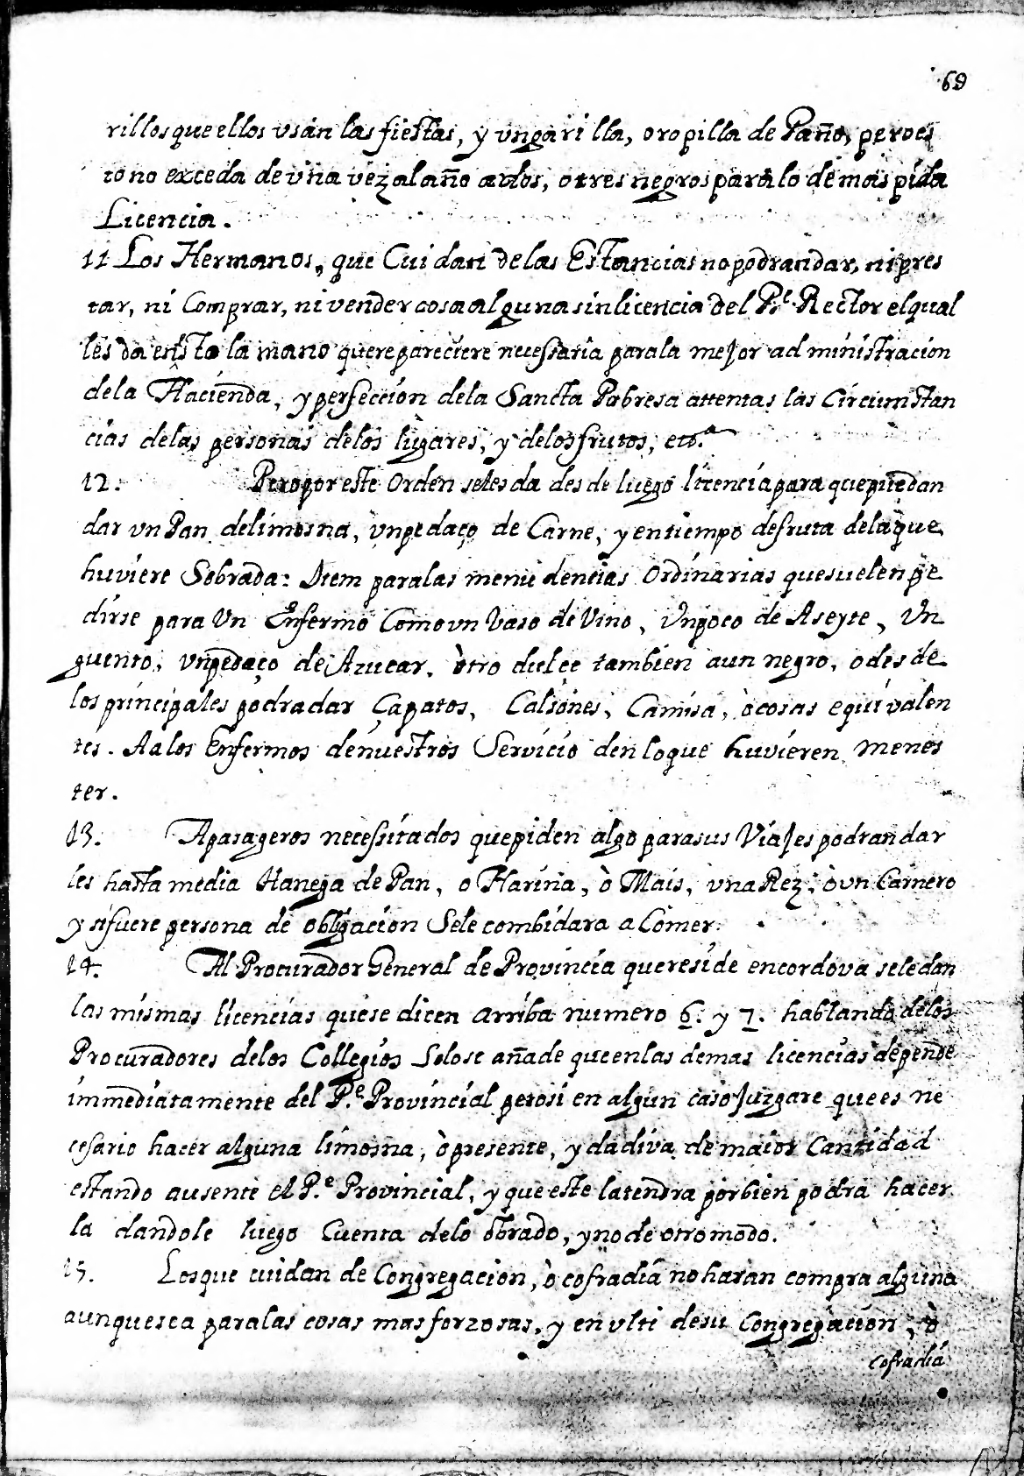 69
rillos que ellos usan las fiestas, y ungarilla, o ropilla de Paño, pero es
to no exceda de una vez al año a dos, o tres negros para lo demas pida
Licencia.
11 Los Hermanos, que Cuidan de las Estancias no podran dar, ni pres
tar, ni Comprar, ni vender cosa alguna sin licencia del P.e Rector el qual
les da en sto la mano que re pareciere necessaria para la mejor administracion
de la Hacienda, y perfeccion de la Sancta Pobresa attentas las Circunstan
cias de las personas de los lugares, y de los frutos, etc.a
12. Pero por este Orden se les da desde luego licencia para que puedan
dar vn Pan de limosna, vn pedaço de Carne, y en tiempo de fruta de la que
huviere Sobrada: Item para las menudencias Ordinarias que suelen pe
dirse para Vn Enfermo Como vn Vaso de Vino, Vn poco de Aseyte, Vn
guento, vn pedaço de Azucar. òtro dulce tambien a un negro, o des de
los principales podra dar Çapatos, Calsones, Camisa, ò cosas equivalen
tes. A a los Enfermos de nuestros Servicio den lo que huvieren menes
ter.
13. A pasageros necessitados que piden algo para sus Viajes podran dar
les hasta media Hanega de Pan, o Harina, ò Mais, vna Rez, ò vn Carnero
y si fuere persona de obligacion Se le combidara a Comer.
14. Al Procurador General de Provincia que reside en cordova se le dan
las mismas licencias que se dicen arriba numero 6. y 7. hablando de los
Procuradores de los Collegios Solo se añade que en las demas licencias depende
immediatamente del P.e Provincial pero si en algun caso Juzgare que es ne
cesario hacer alguna limosna, ò presente, y dadiva de maior Cantidad
estando ausente el P.e Provincial, y que este la tendra por bien podra hacer
la dandole luego Cuenta de lo obrado, y no de otro modo.
15. Los que cuidan de Congregacion, ò cofradia no haran compra alguna
aunque sea para las cosas mas forzosas, y en vlti de su Congregacion, ò
cofradia